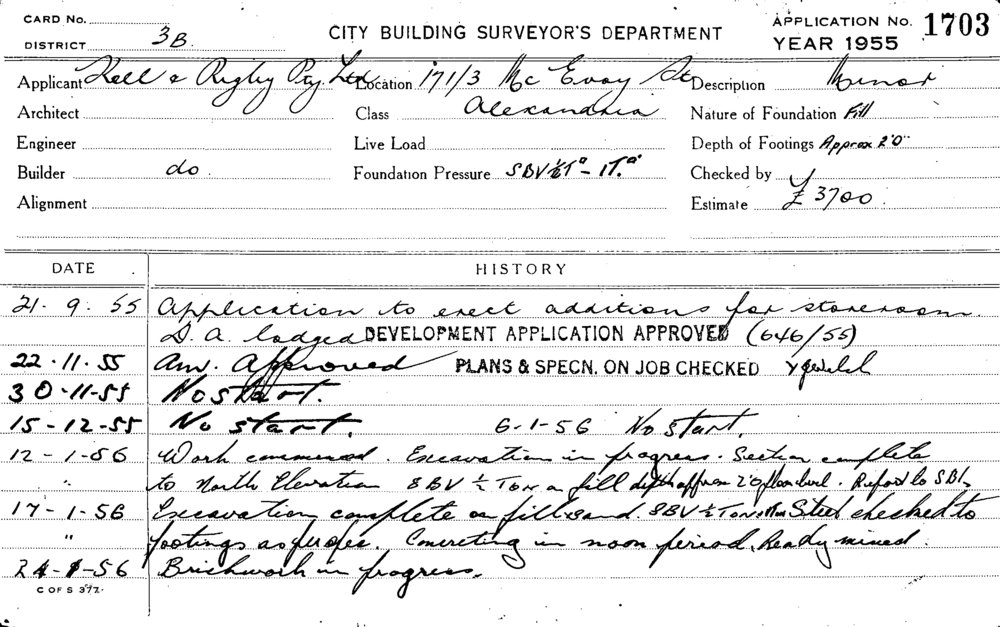 CARD No.
CITY BUILDING SURVEYOR'S DEPARTMENT
APPLICATION No. 1703
DISTRICT 3B.
YEAR 1955
Applicant Kell & Rigby Pty Ltd Location 171/3 McEvoy St Description Minor
Architect Class Alexandria Nature of Foundation Fill
Engineer Live Load Depth of Footings Approx 2'0"
Builder do. Foundation Pressure SBV ½T□ - 1T.□ Checked by
Alignment Estimate £3700.
DATE HISTORY
21. 9. 55 Application to erect additions for storeroom
D.A. lodged DEVELOPMENT APPLICATION APPROVED (646/55)
22.11.55 Am. Approved PLANS & SPECN. ON JOB CHECKED
30.11.55 No start.
15-12-55 No start. 6-1-56 No start.
12-1-56 Work commenced. Excavation in progress. Section complete
" to North Elevation SBV ½ Ton on fill depth approx 2'0 Refored to SBI.
17-1-56 Excavation complete on fill & sand. SBV ½ Ton Steel checked to
" footings as per spec. Concreting in noon period, Ready mixed.
24-1-56 Brickwork in progress.
C OF S 377.